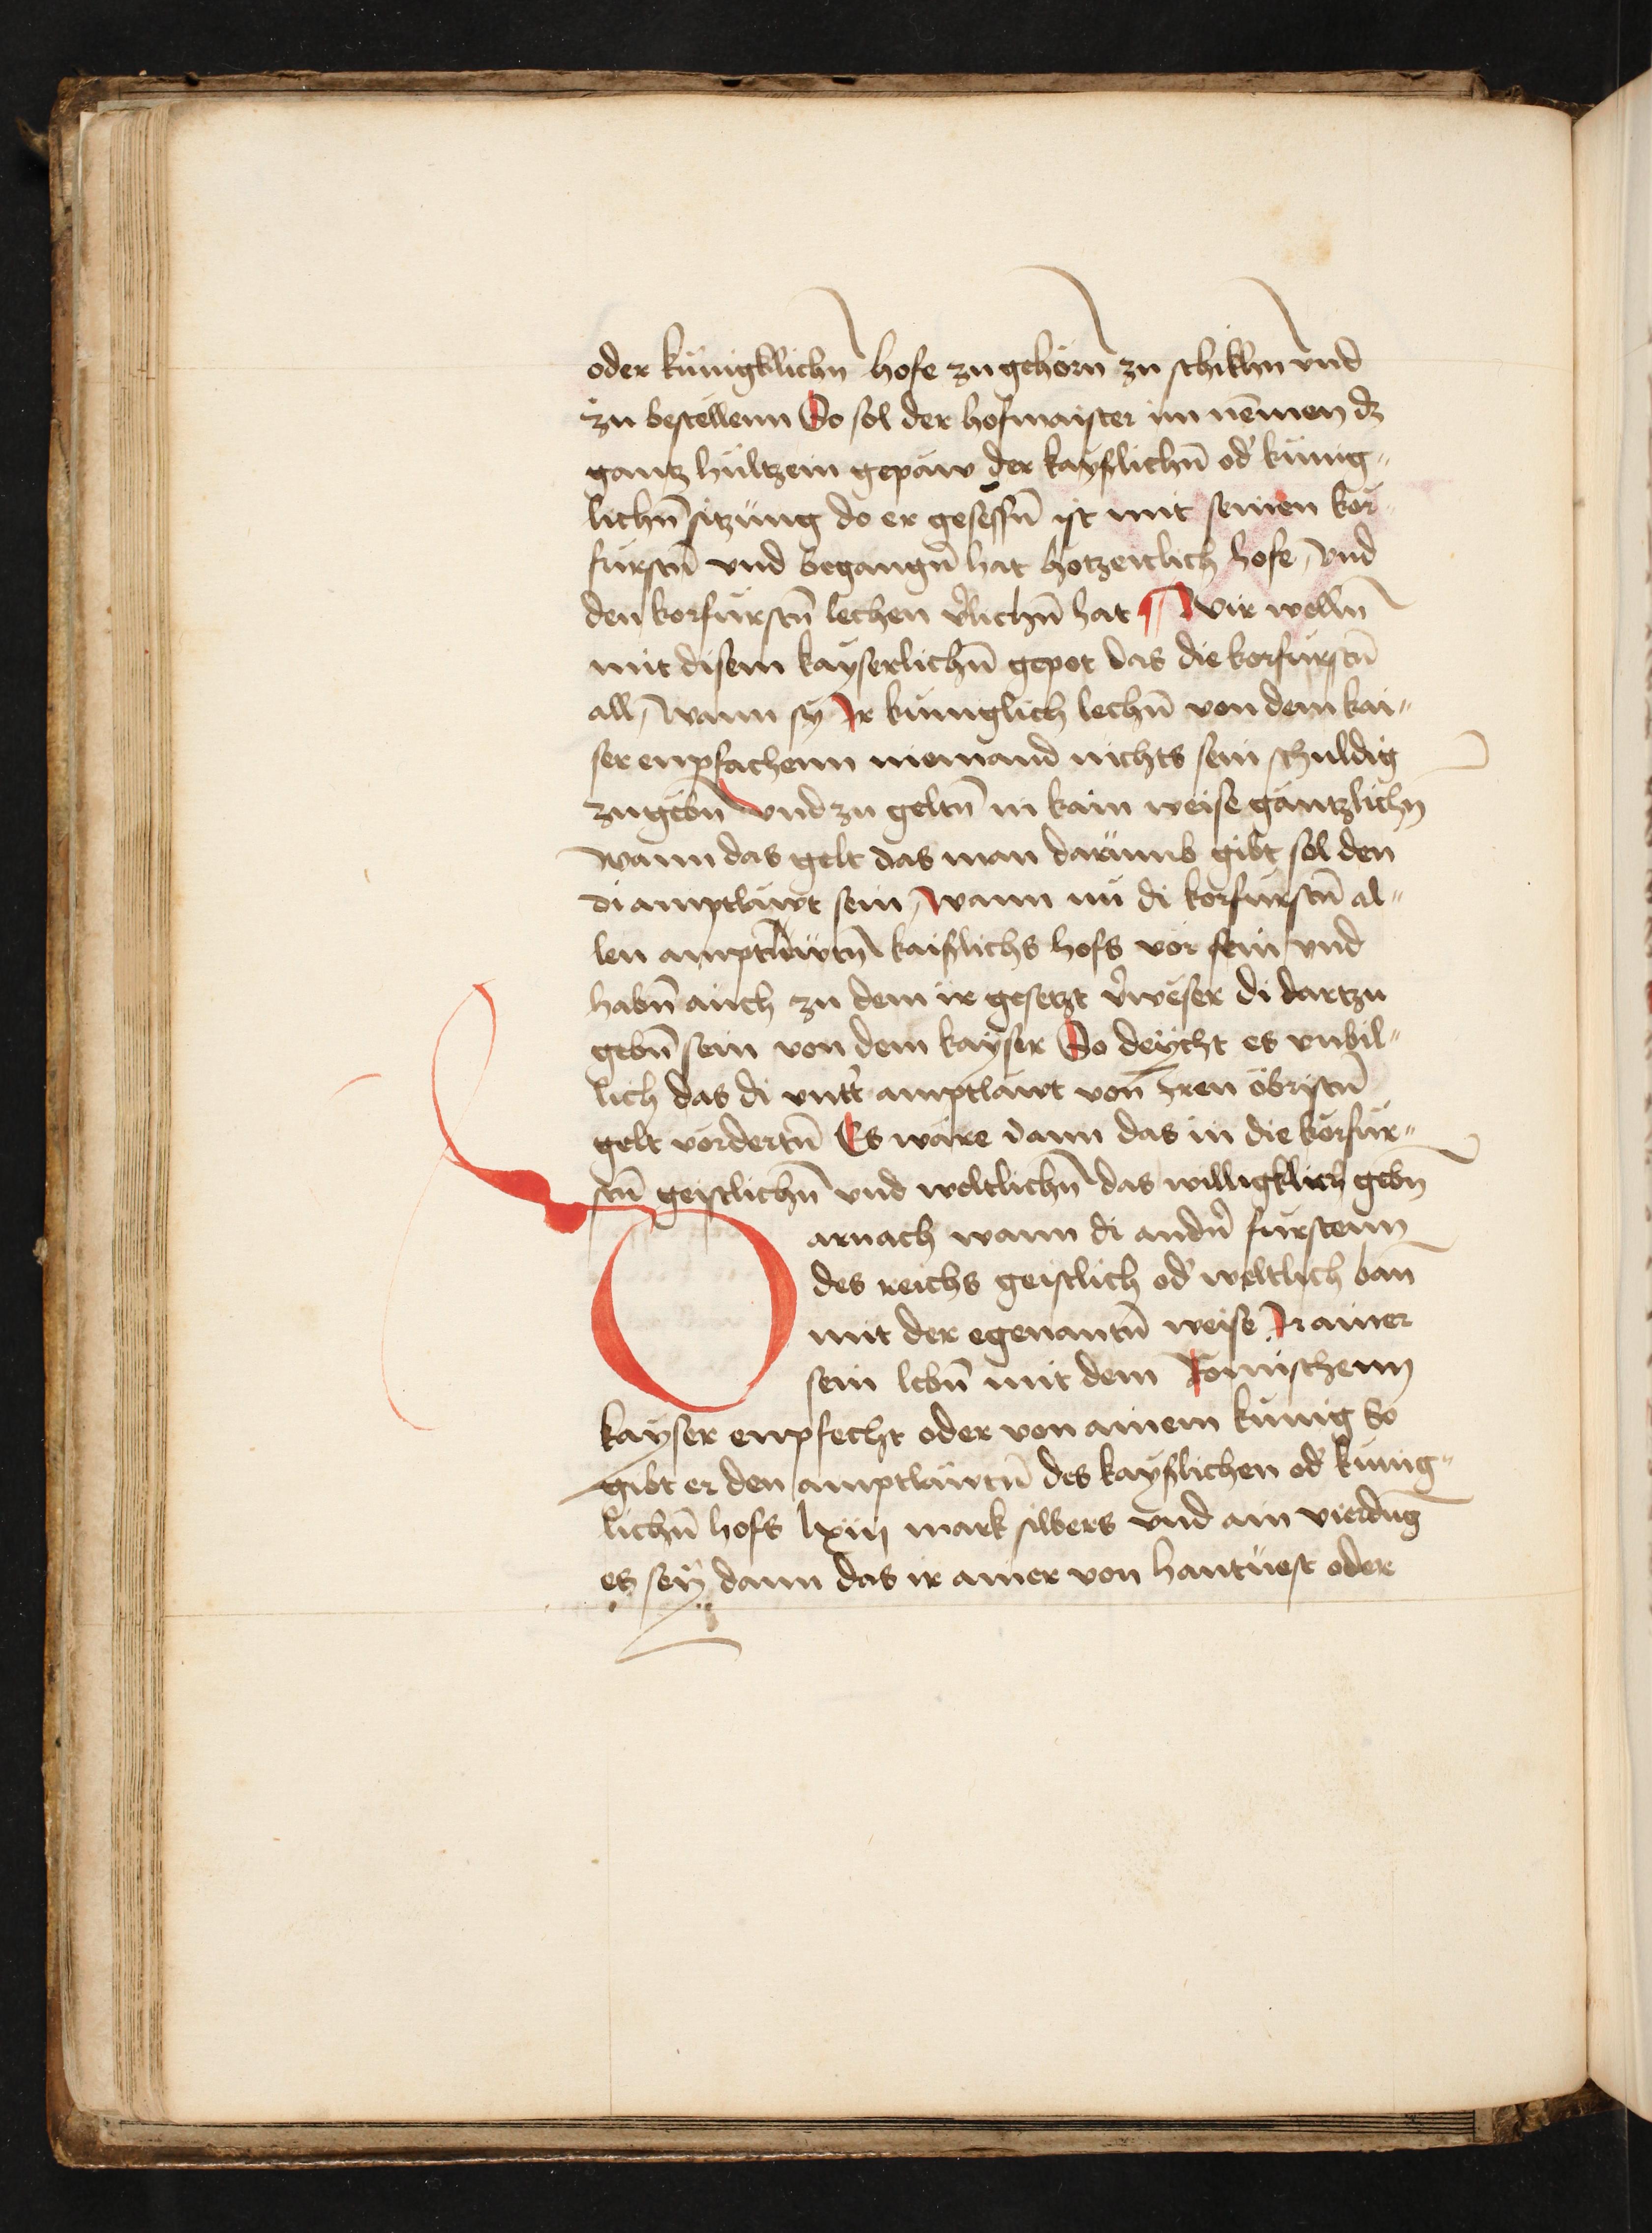 oder künigklichn̄ hofe zugehörn̄ zu schiklm̄ vnd
zu bestellenn So sol der hofmaister im nemen dz
gantz hültzein gepäw der kayslichn̄ od' künig¬
lichn̄ sitzung do er gesessn̄ ist mit seinen kor¬
fürstn̄ vnd begangn̄ hat hotzeitlich hofe / vnd
den korfürstn̄ lechen v'lichn̄ hat ¶ Wir wolln̄
mit disem kayserlichn̄ gepot das die korfürstn̄
all / wann sy Ir küniglich lechn̄ von dem kai¬
ser enpfachenn niemand nichts sein schuldig
zugebn̄ vnd zu geltn̄ in kain weise gäntzlichn̄
wann das gelt das man darumb gibt sol den
di amptläwt sein / wann nü di korfürstn̄ al¬
len amptläwtn̄ kaislichs hofs vor sein vnd
habn̄ auch zu dem ir gesetzt v'weser di dartzu
gebn̄ sein von dem kayser So deycht es vnbil¬
lich das di vntt' amptläwt von Iren öbristn̄
gelt vordertn̄ Es wäre dann das in die korfür¬
stn̄ geistlichn̄ vnd weltlichn̄ das willigklich gebn̄
Darnach wann di andn̄' fürstenn
des reichs geistlich od' weltlich dan̄
mit der egenantn̄ weise Ir ainer
sein lebn̄ mit dem Romischenn
kayser enpfecht oder von ainem künig So
gibt er den amptläwtn̄ des kayslichen od' künig¬
lichn̄ hofs lxiij mark silbers vnd ain vierdūg
es sey dann das ir ainer von hantuest oder